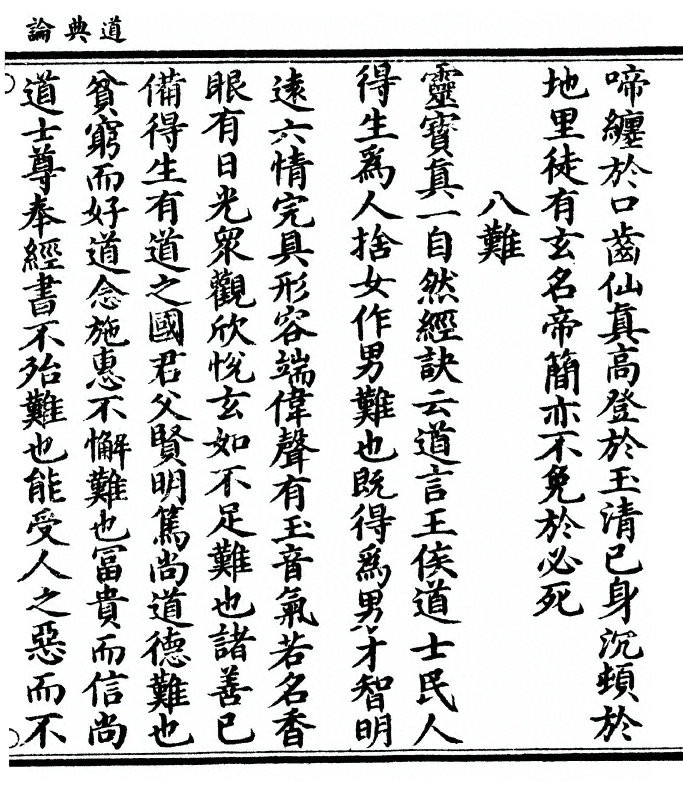 道典論
啼纏於口齒仙真高登於玉清已身沉頓於
地里徒有玄名帝簡亦不免於必死
八難
靈寶真一自然經訣云道言王侯道士民人
得生為人捨女作男難也既得為男才智明
遠六情完具形容端偉聲有玉音氣若名香
眼有日光眾觀欣悅玄如不足難也諸善已
備得生有道之國君父賢明篤尚道德難也
貧窮而好道念施惠不懈難也富貴而信尚
道士尊奉經書不殆難也能受人之惡而不